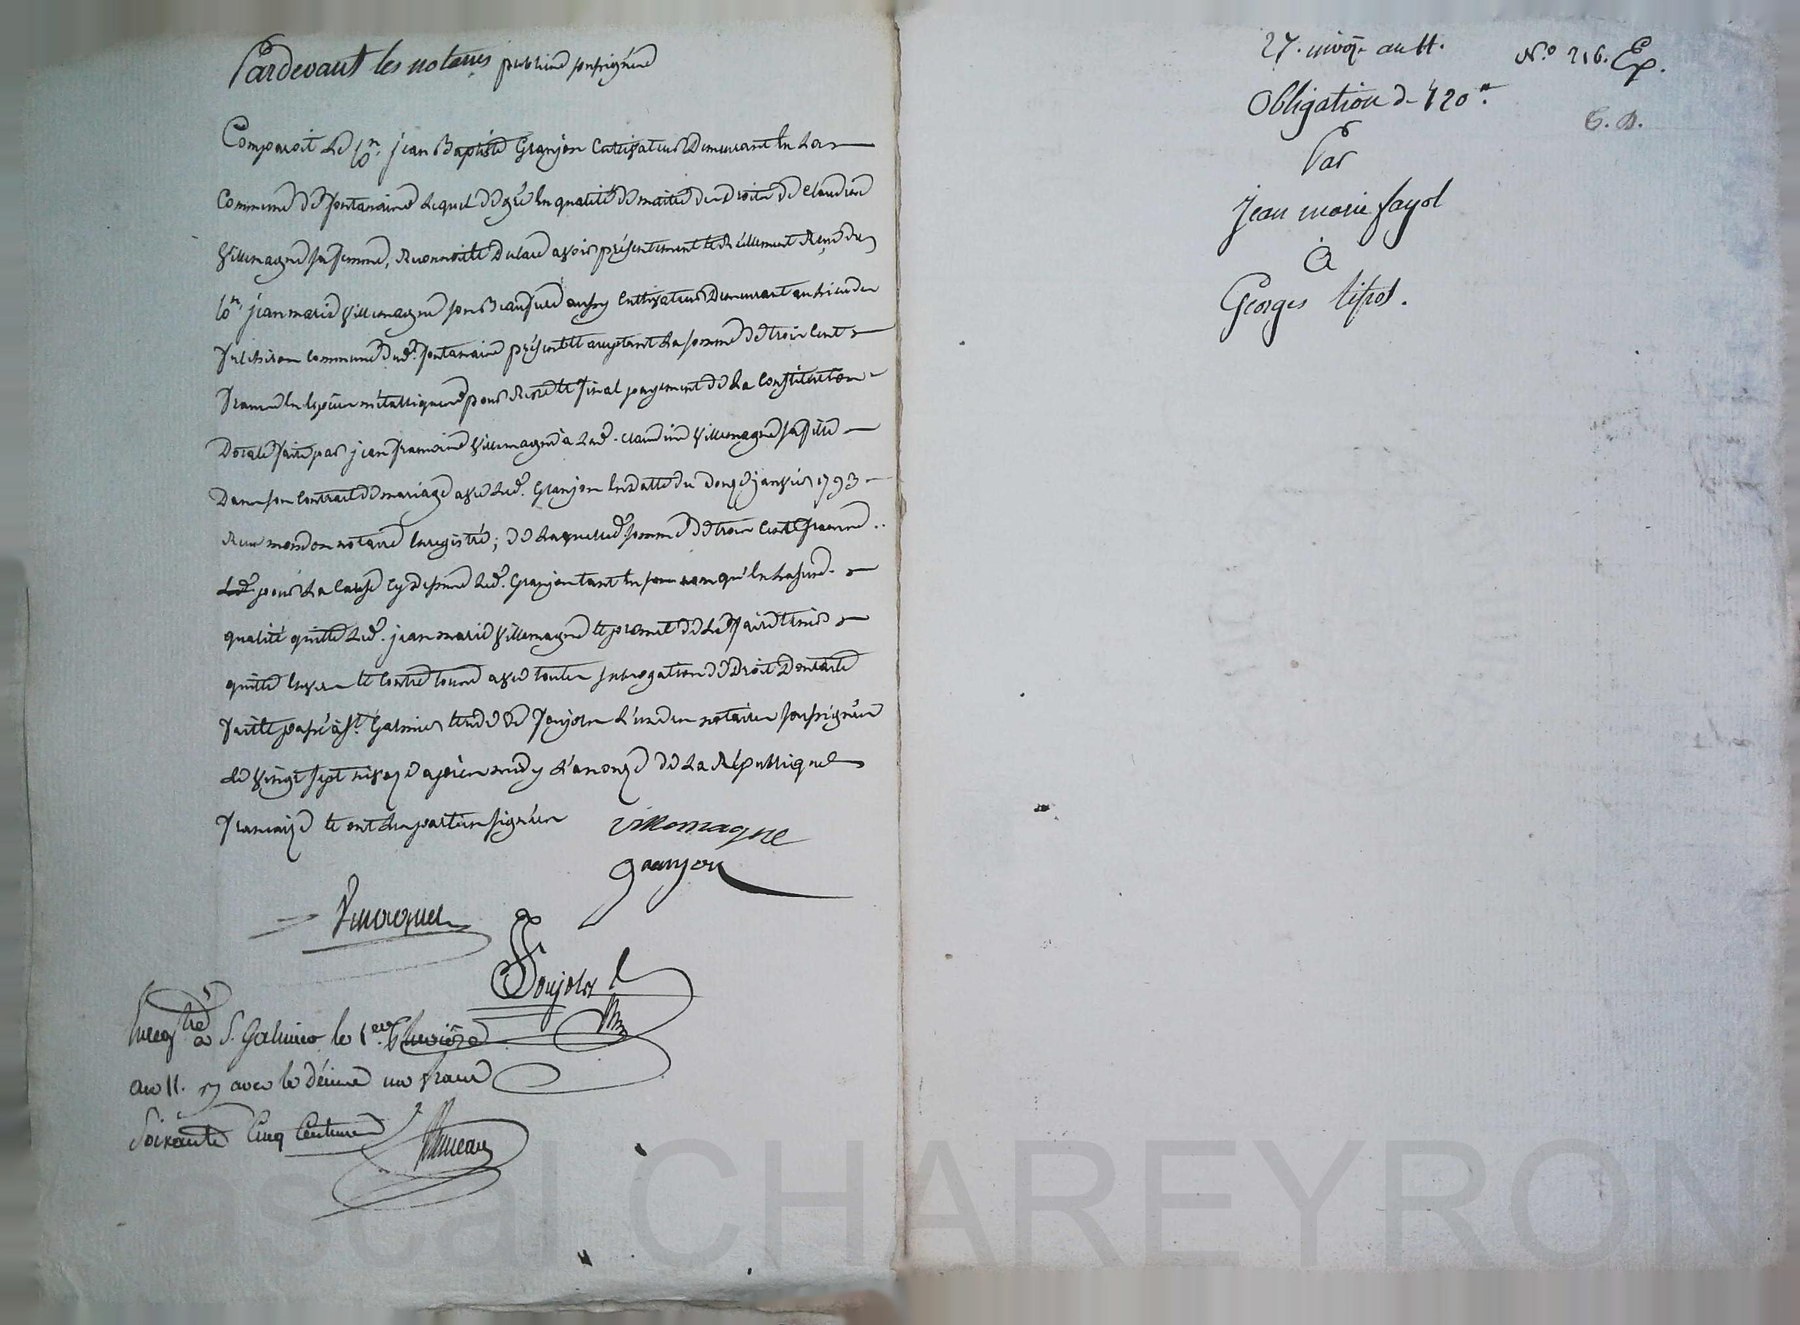 Pardevant les notaires publics soussignés
Comparoit le Cn. jean Baptiste Granjon Cultivateur Demeurant En La
Commune de fontanaine Lequel de gré En qualité de maitre des Droits de Claudine
Villemagne sa femme, Reconnoit et Declare avoir présentement et Réellement Reçu du
Cn. jean marie Villemagne son Beaufrere aussy Cultivateur Demeurant au Lieu de
commune dud. fontanaine présent et acceptant La somme de trois Cent
francs En Espèces métalliques pour Reste et final payement de La Constitution
Dotale faite par jean francois Villemagne à Lad. Claudine Villemagne sa fille
Dans son Contrat de mariage avec Led. Granjon En Datte du Douze janvier 1793
Reçu notaire Enregistré; de Laquelle somme de trois Cents francs
pour La Cause Cy dessus Led. Granjon tant En son nom qu'En Lad.
qualité quitte Led. jean marie Villemagne et promet de Le faire tenir
quitte Envers et Contre tous avec toutes subrogation de Droit Dont acte
fait et passé à St. Galmier Etude de Poujols L'un des notaires soussignés
Le Vingt sept nivose après midy L'an onze de La République
francaise et ont Les parties signées
Villemagne
granjon
Poujols
Enregtré à S. Galmier le 1er. pluviôse
an 11. Rç avec le décime un franc
Soixante Cinq Centimes
27. nivôse an 11.
N.° 216. Ex.
Obligation de 120#.
C. D.
Par
jean marie fayol
à
Georges
ascal CHAREYRON